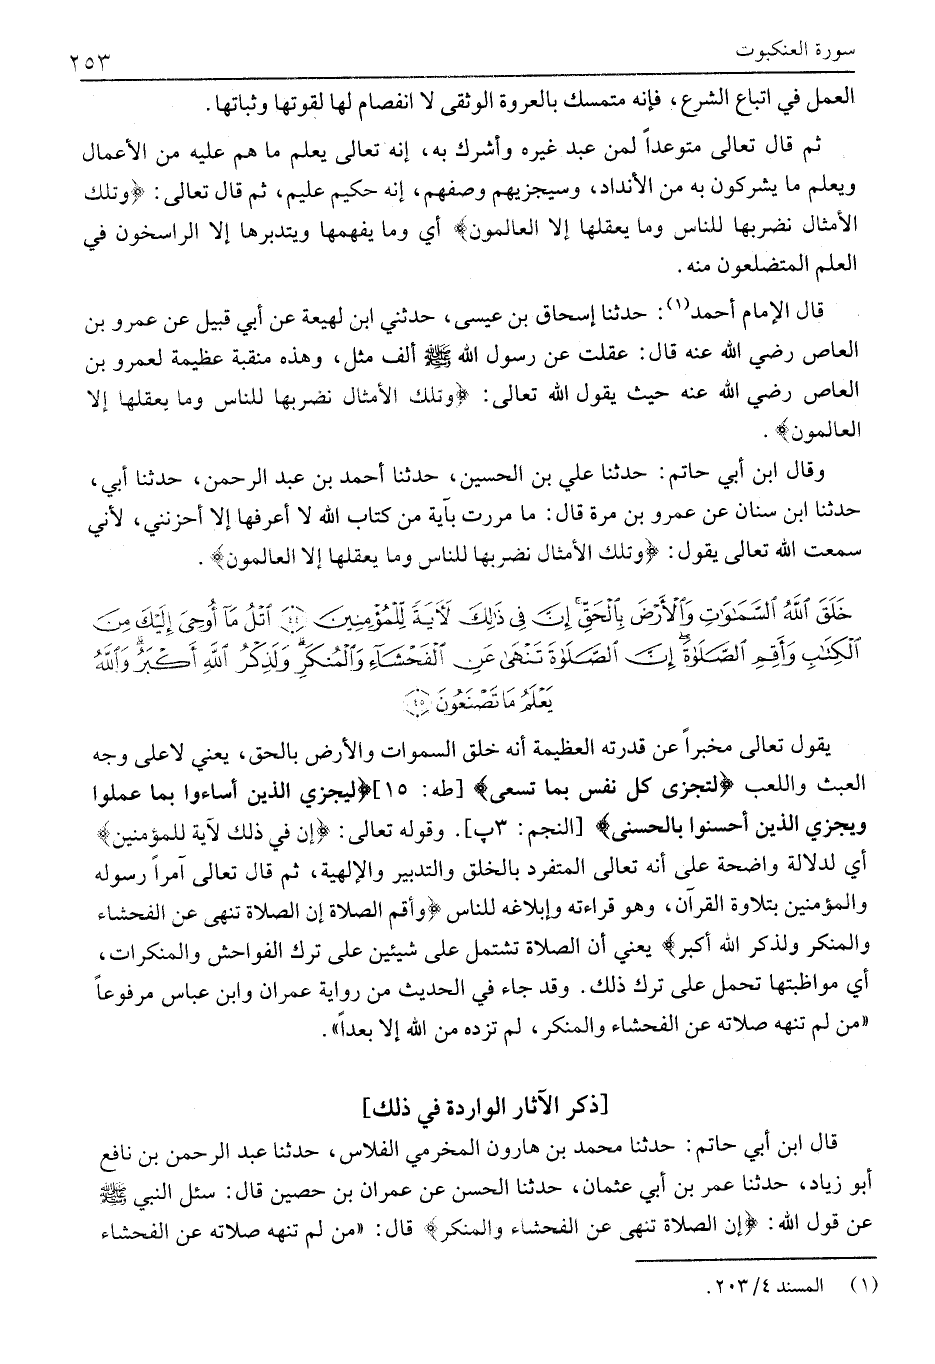 سورة العنكبوت
٢٥٣
العمل في اتباع الشرع، فإنه متمسك بالعروة الوثقى لا انفصام لها لقوتها وثباتها.
ثم قال تعالى متوعداً لمن عبد غيره وأشرك به، إنه تعالى يعلم ما هم عليه من الأعمال
ويعلم ما يشركون به من الأنداد، وسيجزيهم وصفهم، إنه حكيم عليم، ثم قال تعالى: ﴿وتلك
الأمثال نضربها للناس وما يعقلها إلا العالمون﴾ أي وما يفهمها ويتدبرها إلا الراسخون في
العلم المتضلعون منه.
قال الإمام أحمد(١): حدثنا إسحاق بن عيسى، حدثني ابن لهيعة عن أبي قبيل عن عمرو بن
العاص رضي الله عنه قال: عقلت عن رسول الله ﷺ ألف مثل، وهذه منقبة عظيمة لعمرو بن
العاص رضي الله عنه حيث يقول الله تعالى: ﴿وتلك الأمثال نضربها للناس وما يعقلها إلا
العالمون﴾.
وقال ابن أبي حاتم: حدثنا علي بن الحسين، حدثنا أحمد بن عبد الرحمن، حدثنا أبي،
حدثنا ابن سنان عن عمرو بن مرة قال: ما مررت بآية من كتاب الله لا أعرفها إلا أحزنني، لأني
سمعت الله تعالى يقول: ﴿وتلك الأمثال نضربها للناس وما يعقلها إلا العالمون﴾.
خَلَقَ ٱللَّهُ ٱلسَّمَٰوَٰتِ وَٱلْأَرْضَ بِٱلْحَقِّ ۚ إِنَّ فِى ذَٰلِكَ لَآيَةً لِّلْمُؤْمِنِينَ ﴿٤٤﴾ ٱتْلُ مَآ أُوحِىَ إِلَيْكَ مِنَ
ٱلْكِتَٰبِ وَأَقِمِ ٱلصَّلَوٰةَ ۖ إِنَّ ٱلصَّلَوٰةَ تَنْهَىٰ عَنِ ٱلْفَحْشَآءِ وَٱلْمُنكَرِ ۗ وَلَذِكْرُ ٱللَّهِ أَكْبَرُ ۗ وَٱللَّهُ
يَعْلَمُ مَا تَصْنَعُونَ ﴿٤٥﴾
يقول تعالى مخبراً عن قدرته العظيمة أنه خلق السموات والأرض بالحق، يعني لاعلى وجه
العبث واللعب ﴿لتجزى كل نفس بما تسعى﴾ [طه: ١٥]﴿ليجزي الذين أساءوا بما عملوا
ويجزي الذين أحسنوا بالحسنى﴾ [النجم: ٣پ]. وقوله تعالى: ﴿إن في ذلك لآية للمؤمنين﴾
أي لدلالة واضحة على أنه تعالى المتفرد بالخلق والتدبير والإلهية، ثم قال تعالى آمراً رسوله
والمؤمنين بتلاوة القرآن، وهو قراءته وإبلاغه للناس ﴿وأقم الصلاة إن الصلاة تنهى عن الفحشاء
والمنكر ولذكر الله أكبر﴾ يعني أن الصلاة تشتمل على شيئين على ترك الفواحش والمنكرات،
أي مواظبتها تحمل على ترك ذلك. وقد جاء في الحديث من رواية عمران وابن عباس مرفوعاً
«من لم تنهه صلاته عن الفحشاء والمنكر، لم تزده من الله إلا بعداً».
[ذكر الآثار الواردة في ذلك]
قال ابن أبي حاتم: حدثنا محمد بن هارون المخرمي الفلاس، حدثنا عبد الرحمن بن نافع
أبو زياد، حدثنا عمر بن أبي عثمان، حدثنا الحسن عن عمران بن حصين قال: سئل النبي ﷺ
عن قول الله: ﴿إن الصلاة تنهى عن الفحشاء والمنكر﴾ قال: «من لم تنهه صلاته عن الفحشاء
(١) المسند ٢٠٣/٤.